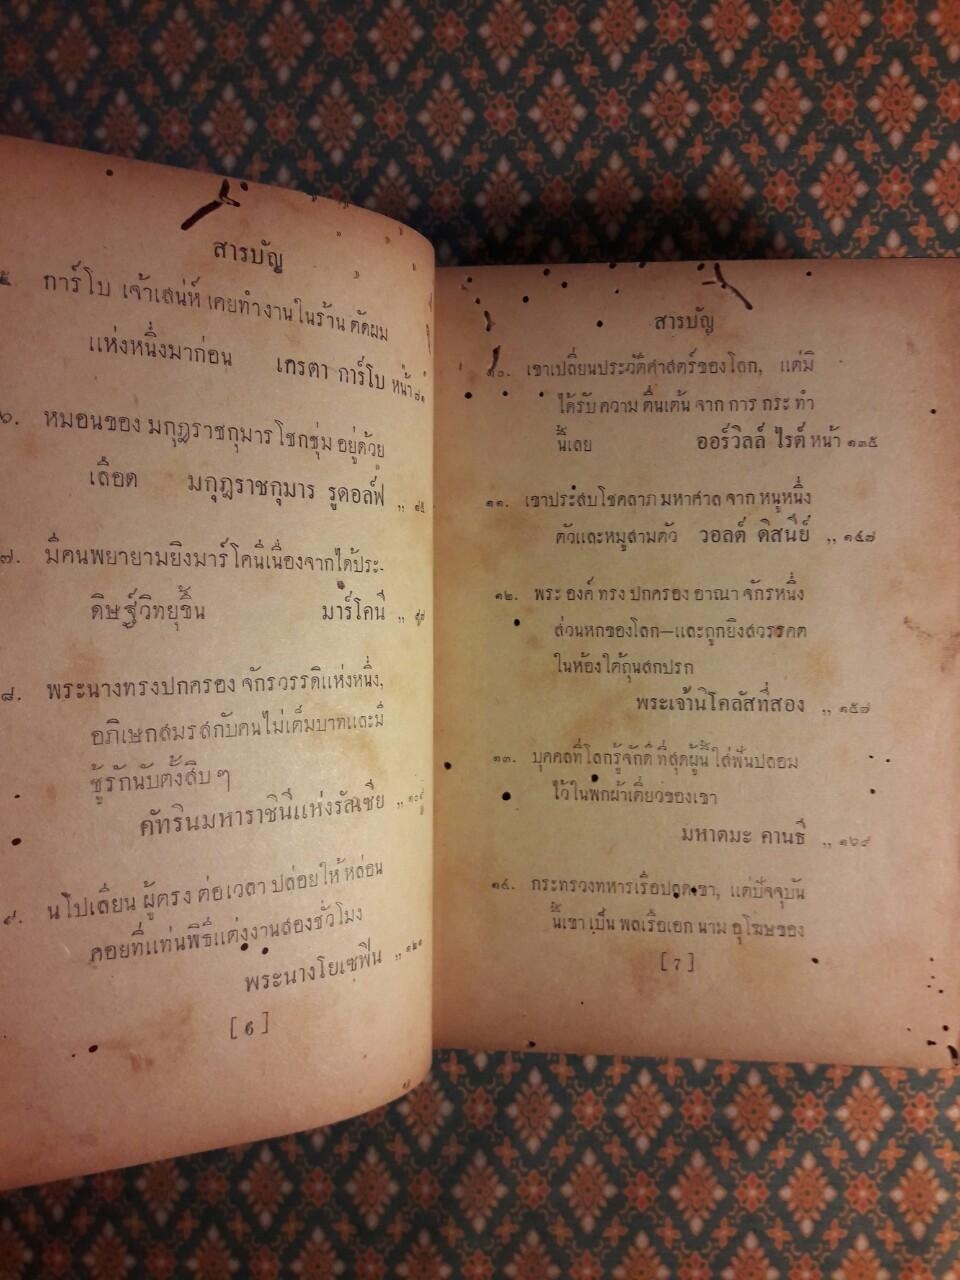 สารบัญ
๕. การ์โบ เจ้าเสน่ห์ เคยทำงานในร้าน ตัดผม
แห่งหนึ่งมาก่อน เกรตา การ์โบ หน้า ๘๑
๖. หมอนของ มกุฎราชกุมาร โชกชุ่ม อยู่ด้วย
เลือด มกุฎราชกุมาร รูดอล์ฟ ,, ๘๕
๗. มีคนพยายามยิงมาร์โคนีเนื่องจากได้ประ-
ดิษฐ์วิทยุขึ้น มาร์โคนี ,, ๙๗
๘. พระนางทรงปกครอง จักรวรรดิแห่งหนึ่ง,
อภิเษกสมรสกับคนไม่เต็มบาทและมี
ชู้รักนับตั้งสิบ ๆ
คัทรินมหาราชินีแห่งรัสเซีย ,, ๑๐๙
๙. นโปเลียน ผู้ตรง ต่อเวลา ปล่อยให้ หล่อน
คอยที่แท่นพิธีแต่งงานสองชั่วโมง
พระนางโยเซฟีน ,, ๑๒๑
[ 6 ]
สารบัญ
๑๐. เขาเปลี่ยนประวัติศาสตร์ของโลก, แต่มิ
ได้รับ ความ ตื่นเต้น จาก การ กระ ทำ
นี้เลย ออร์วิลล์ ไรต์ หน้า ๑๓๕
๑๑. เขาประสบโชคลาภ มหาศาล จาก หนูหนึ่ง
ตัวและหมูสามตัว วอลต์ ดิสนีย์ ,, ๑๔๗
๑๒. พระ องค์ ทรง ปกครอง อาณา จักรหนึ่ง
ส่วนหกของโลก—และถูกยิงสวรรคต
ในห้องใต้ถุนสกปรก
พระเจ้านิโคลัสที่สอง ,, ๑๕๗
๑๓. บุคคลที่โลกรู้จักดี ที่สุดผู้นี้ ใส่ฟันปลอม
ไว้ในพกผ้าเตี่ยวของเขา
มหาตมะ คานธี ,, ๑๖๙
๑๔. กระทรวงทหารเรือปลดเขา, แต่ปัจจุบัน
นี้เขา เป็น พลเรือเอก นาม อุโฆษของ
[ 7 ]